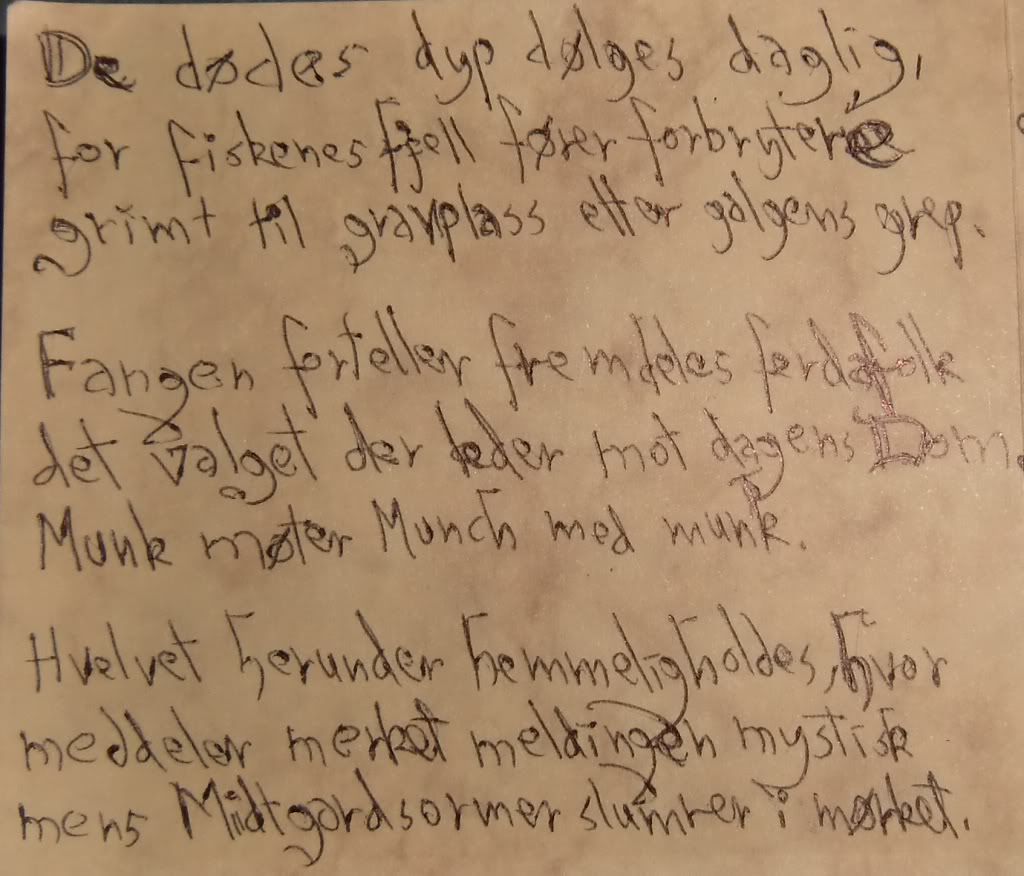 De dødes dyp dølges daglig,
for fiskenes fjell fører forbrytere
grimt til gravplass etter galgens grep.
Fangen forteller fremdeles ferdafolk
det valget der leder mot dagens Dom.
Munk møter Munch med munk.
Hvelvet herunder hemmeligholdes, hvor
meddeler merket meldingen mystisk
mens Midtgardsormer slumrer i mørket.